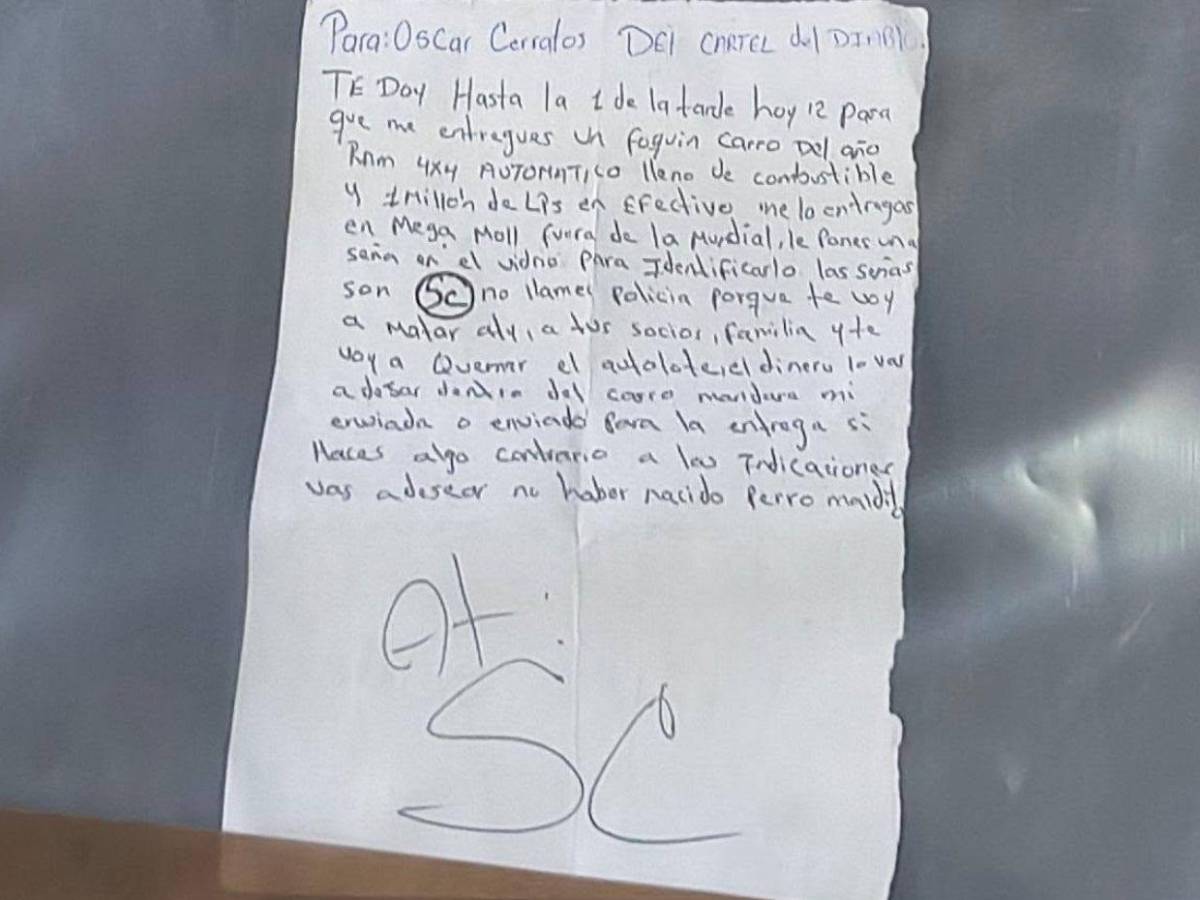 Para: Oscar Cerratos DEl CARTEL del DIABlO.
TE DOY Hasta la 1 de la tarde hoy 12 para
que me entregues un foquin carro Del año
Ram 4x4 AUTOMATICO lleno de combustible
y 1 Millon de LPs en EFectivo me lo entregas
en Mega Moll fuera de la Mundial, le Pones una
seña en el vidrio para Identificarlo las señas
son SC no llames Policia porque te voy
a Matar aty, a tus socios, familia y te
voy a Quemar el autolote, el dinero lo vas
a dejar dentro del carro mandara mi
enviada o enviado para la entrega si
Haces algo contrario a las Indicaciones
vas a desear no haber nacido Perro maldito
At:
SC